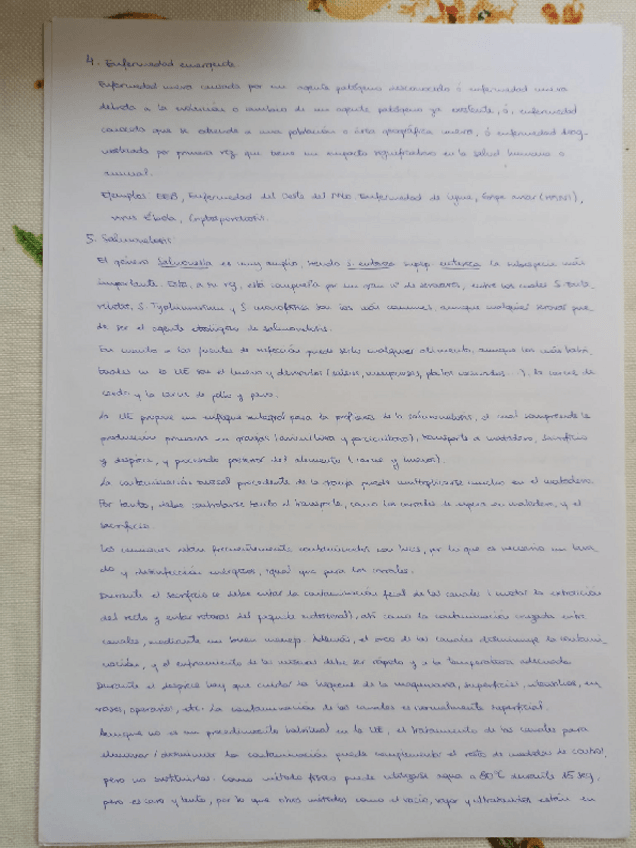 4. Enfermedad emergente
Enfermedad nueva causada por un agente patógeno desconocido ó enfermedad nueva
debida a la evolución o cambios de un agente patógeno ya existente, ó, enfermedad
conocida que se extiende a una población o área geográfica nueva, ó enfermedad diag-
nosticada por primera vez que tiene un impacto significativo en la salud humana o
animal.
Ejemplos: EEB, Enfermedad del Oeste del Nilo, Enfermedad de Lyme, Gripe aviar (H5N1),
virus Ébola, Cryptosporidiosis.
5. Salmonelosis
El género Salmonella es muy amplio, siendo S. enterica subsp. enterica la subespecie más
importante. Esta, a su vez, está compuesta por un gran nº de serovares, entre los cuales S. Ente-
ritidis, S. Typhimurium y S. monofásica son los más comunes, aunque cualquier serovar pue-
de ser el agente etiológico de salmonelosis.
En cuanto a las fuentes de infección puede serlo cualquier alimento, aunque los más habi-
tuales en la UE son el huevo y derivados (salsas, mayonesas, platos cocinados...), la carne de
cerdo y la carne de pollo y pavo.
La UE propone un enfoque integral para la profilaxis de la salmonelosis, el cual comprende la
producción primaria en granjas (avicultura y porcicultura), transporte a matadero, sacrificio
y despiece, y procesado posterior del alimento (carne y huevos).
La contaminación inicial procedente de la granja puede multiplicarse mucho en el matadero.
Por tanto, debe controlarse tanto el transporte, como los corrales de espera en matadero, y el
sacrificio.
Los camiones están frecuentemente contaminados con heces, por lo que es necesario un lava-
do y desinfección enérgicos, igual que para los corrales.
Durante el sacrificio se debe evitar la contaminación fecal de las canales (evitar la extracción
del recto y evitar roturas del paquete intestinal), así como la contaminación cruzada entre
canales, mediante un buen manejo. Además, el oreo de las canales disminuye la contami-
nación, y el enfriamiento de las mismas debe ser rápido y a la temperatura adecuada.
Durante el despiece hay que cuidar la higiene de la maquinaria, superficies, utensilios, en-
vases, operarios, etc. La contaminación de las canales es normalmente superficial.
Aunque no es un procedimiento habitual en la UE, el tratamiento de las canales para
eliminar/disminuir la contaminación puede complementar el resto de medidas de control,
pero no sustituirlas. Como método físico puede utilizarse agua a 80ºC durante 15 seg,
pero es caro y lento, por lo que otros métodos como el vacío, vapor y ultrasonidos están en